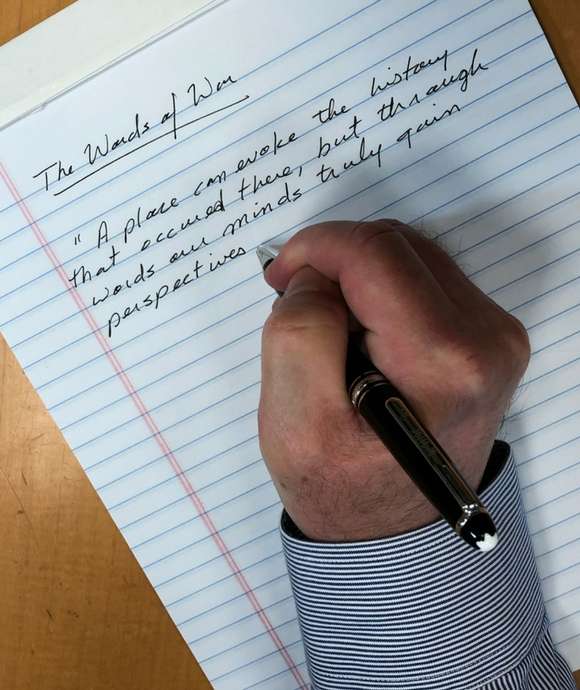 The Words of War
" A place can evoke the history
that occured there, but through
words our minds truly gain
perspectives